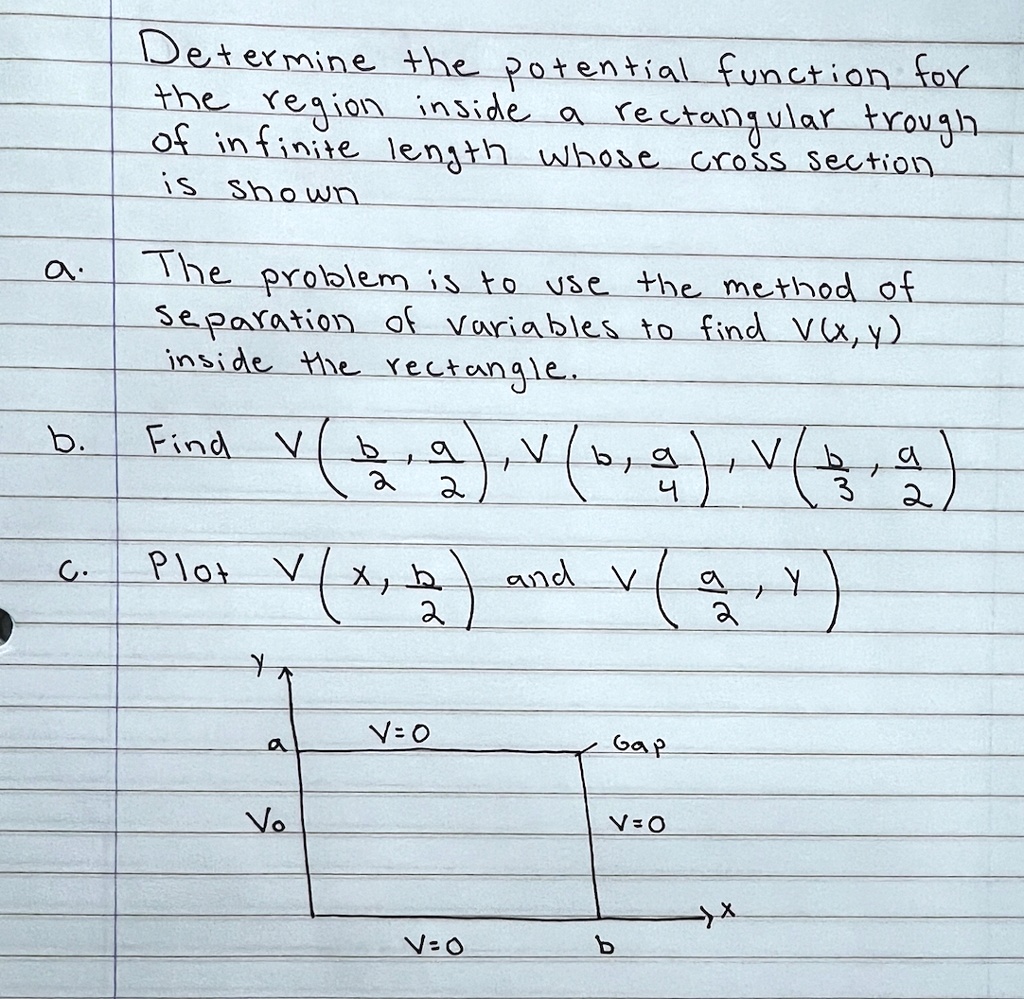 Determine the potential function for
the region inside a rectangular trough
of infinite length whose cross section
is shown
a. The problem is to use the method of
separation of variables to find V(x,y)
inside the rectangle.
b. Find V(b/2, a/2), V(b, a/4), V(b/3, a/2)
c. Plot V(x, b/2) and V(a/2, y)
y
a V=0 Gap
Vo V=0
x
V=0 b